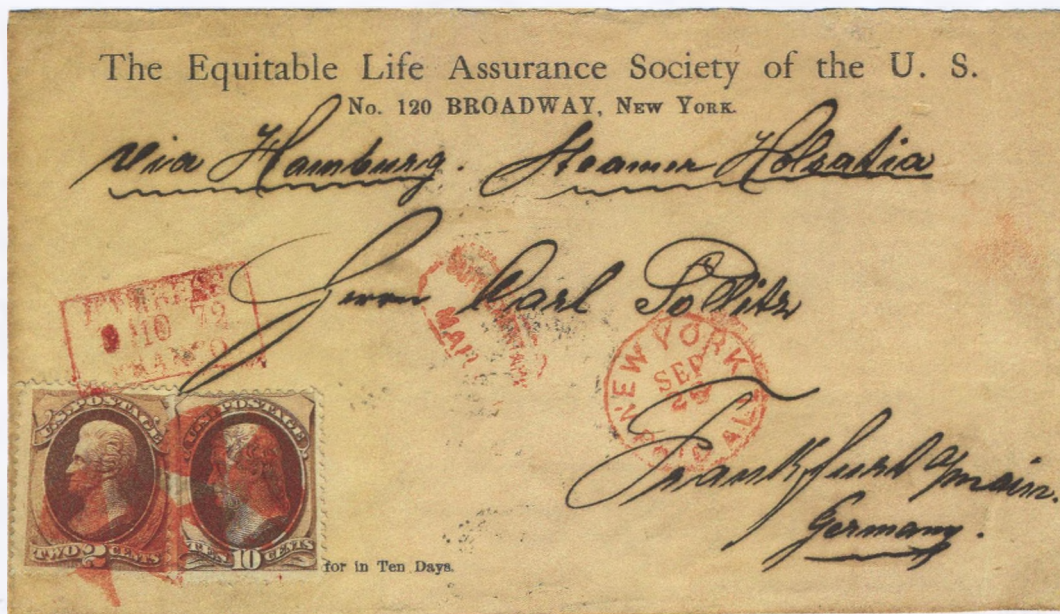 The Equitable Life Assurance Society of the U. S.
No. 120 BROADWAY, New York.
via Hamburg. Steamer Holsatia
Herrn Carl Pollitz
NEW YORK
SEP
PAID ALL
72
FRANCO
Frankfurt a/main.
Germany.
U.S. POSTAGE
TWO 2 CENTS
U.S. POSTAGE
TEN 10 CENTS
for in Ten Days.